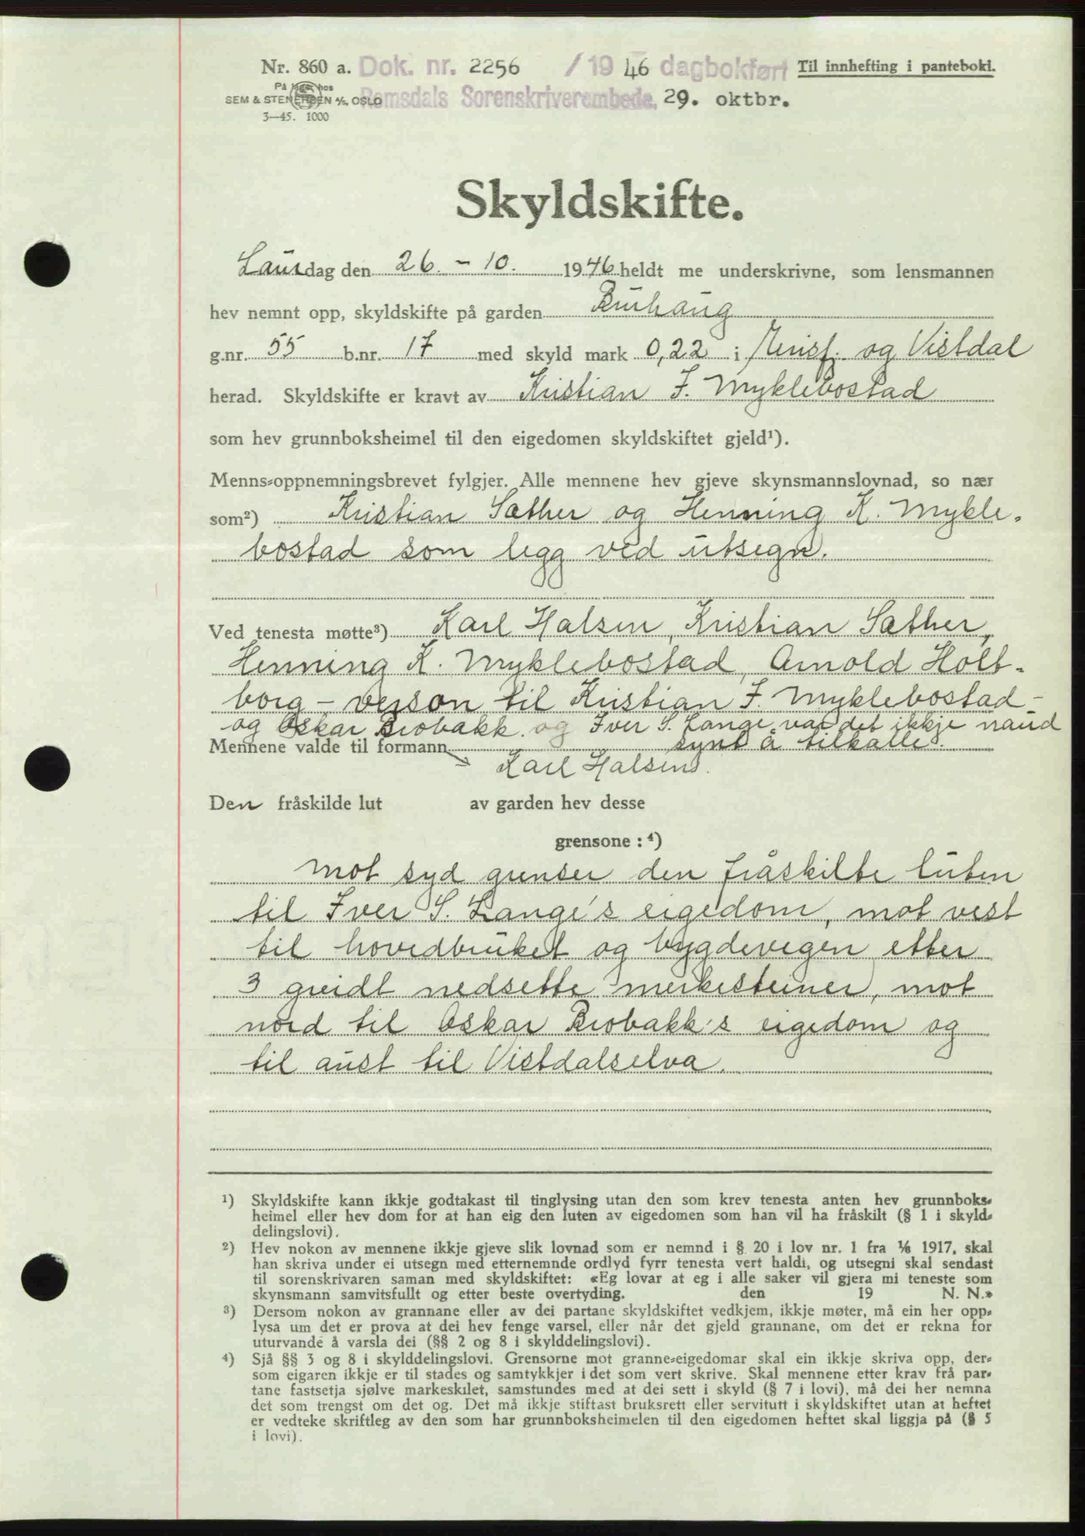 Nr. 860 a. Dok. nr. 2256 / 19 46 dagbokført Til innhefting i panteboki.
På lager hos
SEM & STENERSEN A/S, OSLO Romsdals Sorenskriverembede, 29. oktbr.
3—45. 1000
Skyldskifte.
Laurdag den 26. - 10. 1946 heldt me underskrivne, som lensmannen
hev nemnt opp, skyldskifte på garden Buhaug
g.nr. 55 b.nr. 17 med skyld mark 0,22 i Erisf. og Vistdal
herad. Skyldskifte er kravt av Kristian F. Myklebostad
som hev grunnboksheimel til den eigedomen skyldskiftet gjeld¹).
Menns-oppnemningsbrevet fylgjer. Alle mennene hev gjeve skynsmannslovnad, so nær
som²) Kristian Sæther og Henning K. Mykle-
bostad som legg ved utsegn.
Ved tenesta møtte³) Karl Halsen, Kristian Sæther,
Henning K. Myklebostad, Arnold Holt-
borg - verson til Kristian F. Myklebostad -
og Oskar Brobakk. og Iver S. Lange var det ikkje naud
Mennene valde til formann synt å tilkalle.
Karl Halsen.
Den fråskilde lut av garden hev desse
grensone : ⁴)
Mot syd grenser den fråskilte luten
til Iver S. Lange's eigedom, mot vest
til hovedbruket og bygdevegen etter
3 greidt nedsette merkesteiner, mot
nord til Oskar Brobakk's eigedom og
til aust til Vistdalselva.
¹) Skyldskifte kann ikkje godtakast til tinglysing utan den som krev tenesta anten hev grunnboks-
heimel eller hev dom for at han eig den luten av eigedomen som han vil ha fråskilt (§ 1 i skyld-
delingslovi).
²) Hev nokon av mennene ikkje gjeve slik lovnad som er nemnd i § 20 i lov nr. 1 fra 1/6 1917, skal
han skriva under ei utsegn med etternemnde ordlyd fyrr tenesta vert haldi, og utsegni skal sendast
til sorenskrivaren saman med skyldskiftet: «Eg lovar at eg i alle saker vil gjera mi teneste som
skynsmann samvitsfullt og etter beste overtyding. den 19 N. N.»
³) Dersom nokon av grannane eller av dei partane skyldskiftet vedkjem, ikkje møter, må ein her opp-
lysa um det er prova at dei hev fenge varsel, eller når det gjeld grannane, om det er rekna for
uturvande å varsla dei (§§ 2 og 8 i skylddelingslovi).
⁴) Sjå §§ 3 og 8 i skylddelingslovi. Grensorne mot granne-eigedomar skal ein ikkje skriva opp, der-
som eigaren ikkje er til stades og samtykkjer i det som vert skrive. Skal mennene etter krav frå par-
tane fastsetja sjølve markeskilet, samstundes med at dei sett i skyld (§ 7 i lovi), må dei her nemna
det som trengst om det og. Det må ikkje stiftast bruksrett eller servitutt i skyldskiftet utan at heftet
er vedteke skriftleg av den som har grunnboksheimelen til den eigedomen heftet skal liggja på (§ 5
i lovi).